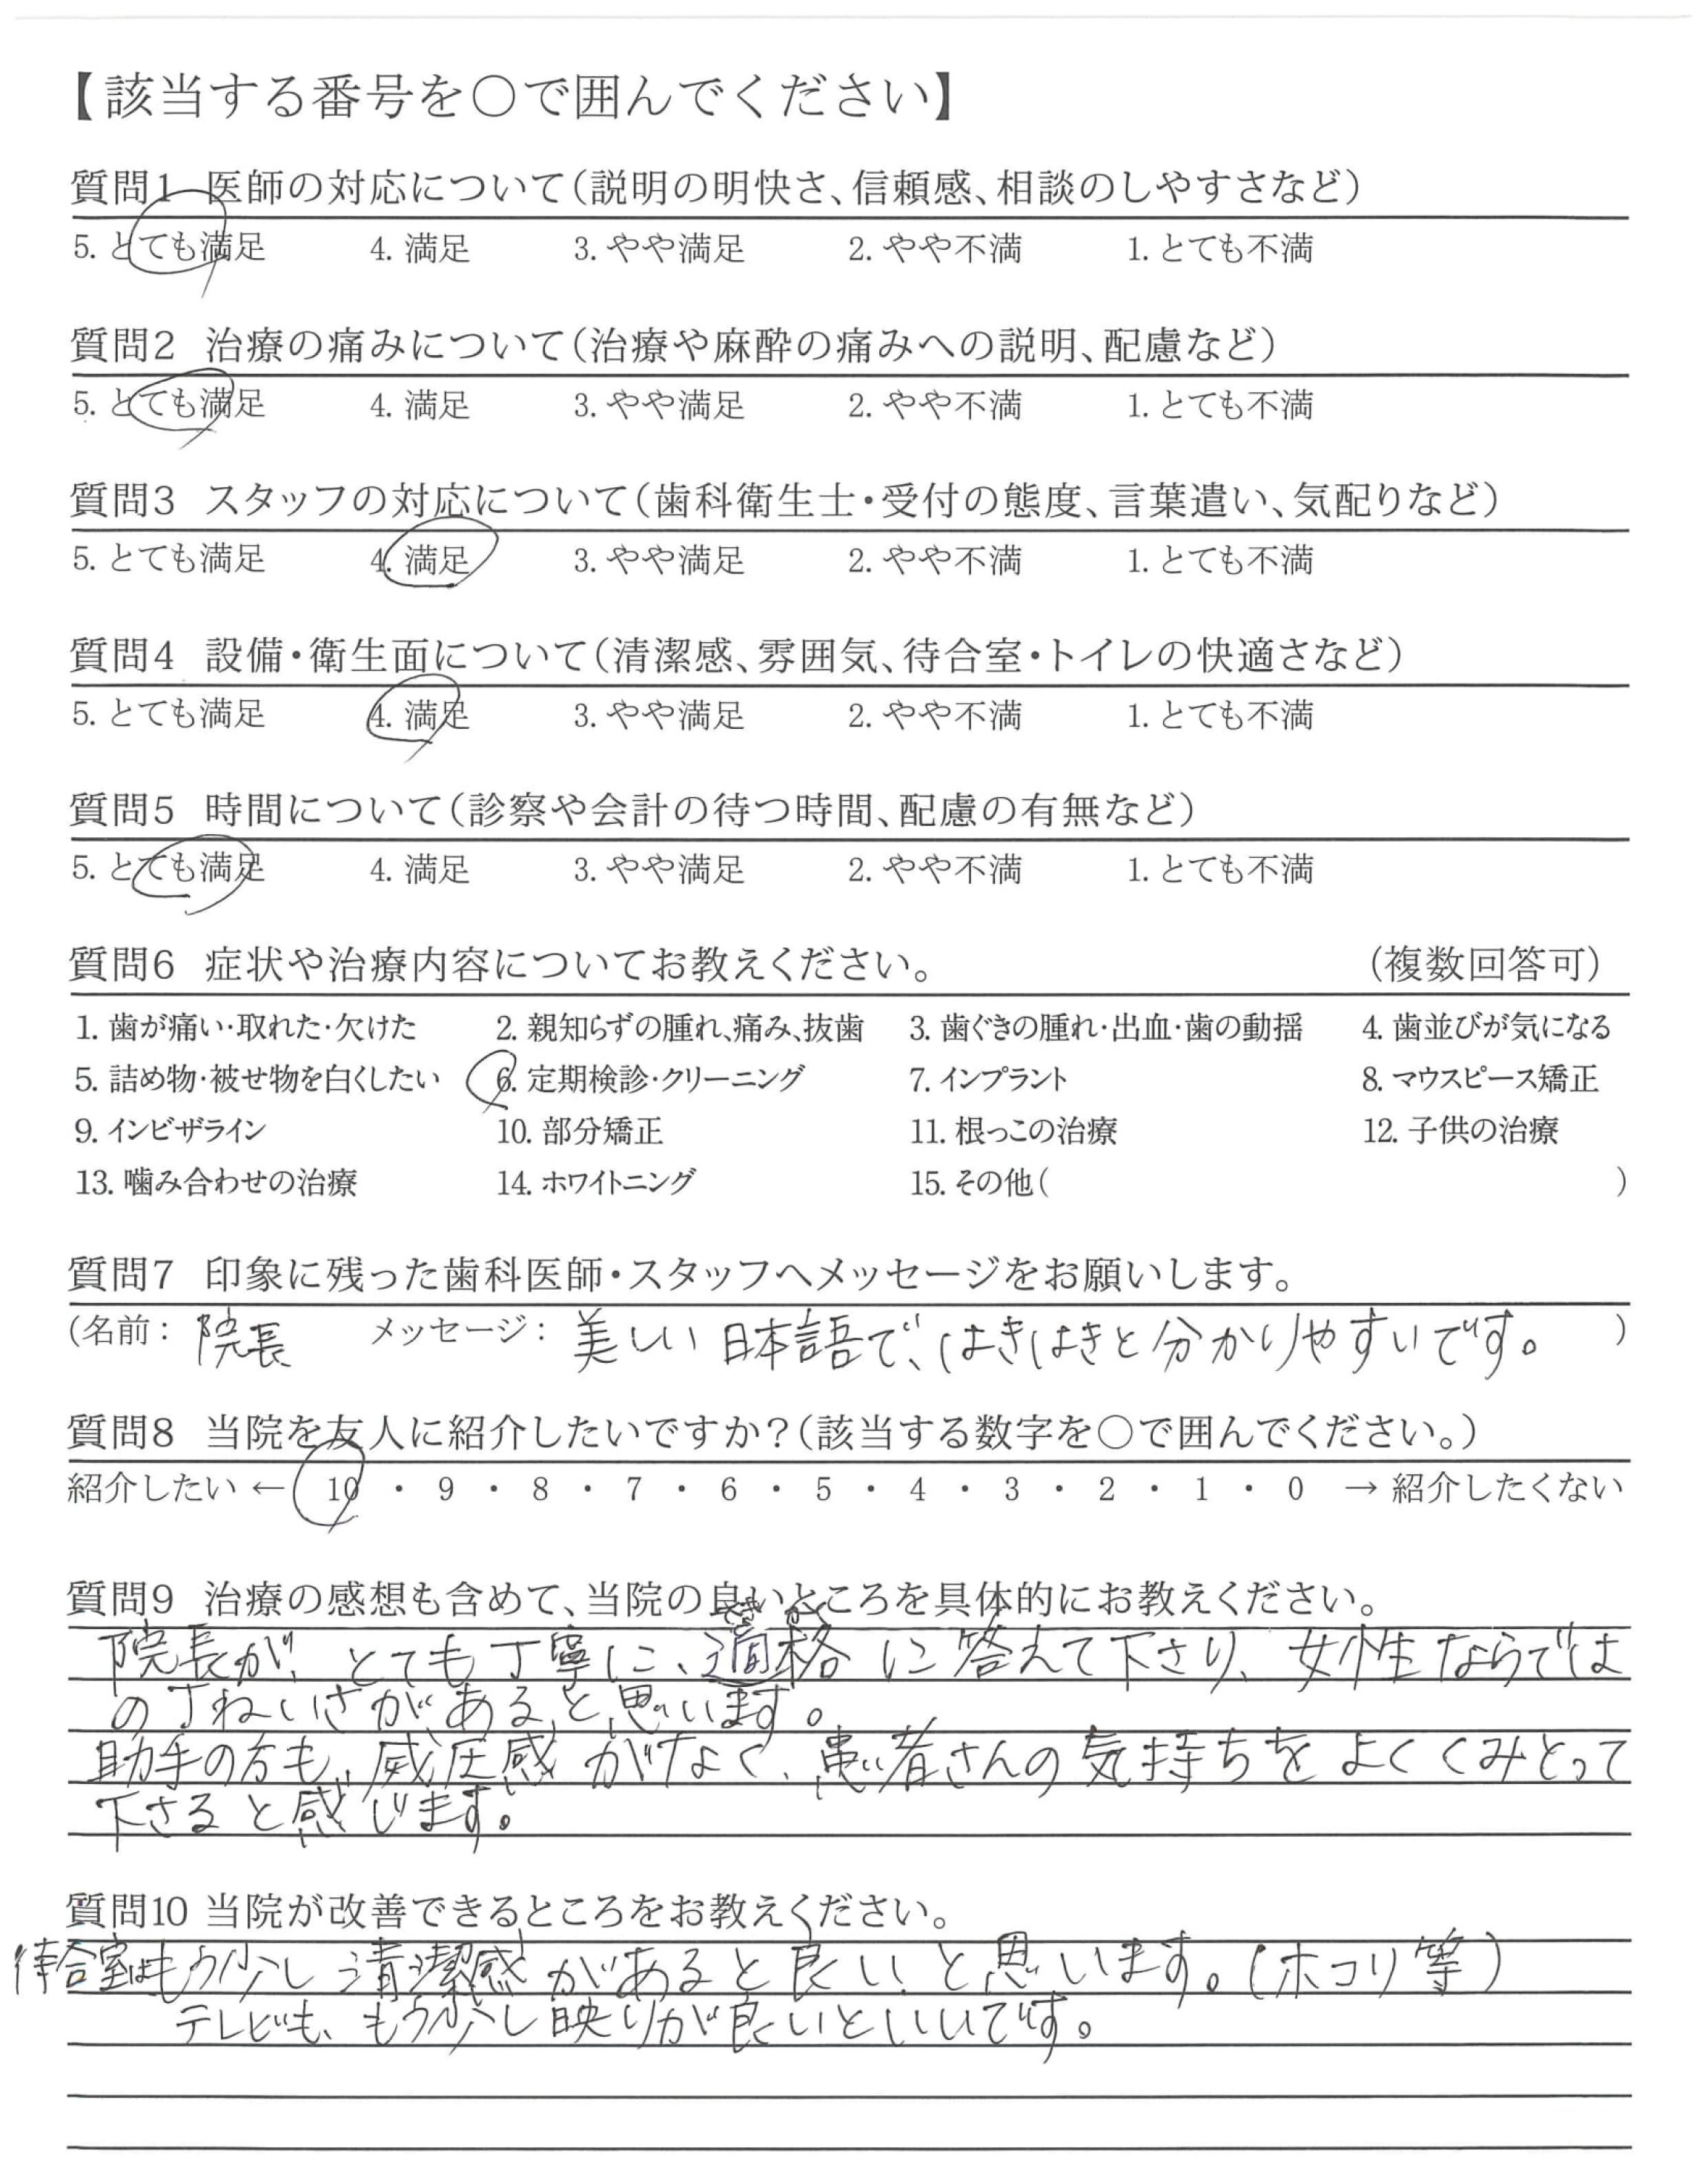 【該当する番号を○で囲んでください】
質問1 医師の対応について(説明の明快さ、信頼感、相談のしやすさなど)
5. とても満足 4. 満足 3. やや満足 2. やや不満 1. とても不満
質問2 治療の痛みについて(治療や麻酔の痛みへの説明、配慮など)
5. とても満足 4. 満足 3. やや満足 2. やや不満 1. とても不満
質問3 スタッフの対応について(歯科衛生士・受付の態度、言葉遣い、気配りなど)
5. とても満足 4. 満足 3. やや満足 2. やや不満 1. とても不満
質問4 設備・衛生面について(清潔感、雰囲気、待合室・トイレの快適さなど)
5. とても満足 4. 満足 3. やや満足 2. やや不満 1. とても不満
質問5 時間について(診察や会計の待つ時間、配慮の有無など)
5. とても満足 4. 満足 3. やや満足 2. やや不満 1. とても不満
質問6 症状や治療内容についてお教えください。 (複数回答可)
1. 歯が痛い・取れた・欠けた 2. 親知らずの腫れ、痛み、抜歯 3. 歯ぐきの腫れ・出血・歯の動揺 4. 歯並びが気になる
5. 詰め物・被せ物を白くしたい 6. 定期検診・クリーニング 7. インプラント 8. マウスピース矯正
9. インビザライン 10. 部分矯正 11. 根っこの治療 12. 子供の治療
13. 噛み合わせの治療 14. ホワイトニング 15. その他( )
質問7 印象に残った歯科医師・スタッフへメッセージをお願いします。
(名前: 院長 メッセージ: 美しい日本語で、はきはきと分かりやすいです。 )
質問8 当院を友人に紹介したいですか?(該当する数字を○で囲んでください。)
紹介したい ← 10 ・ 9 ・ 8 ・ 7 ・ 6 ・ 5 ・ 4 ・ 3 ・ 2 ・ 1 ・ 0 → 紹介したくない
質問9 治療の感想も含めて、当院の良いところを具体的にお教えください。
てきかく
院長が、とても丁寧に、適格に答えて下さり、女性ならでは
の丁ねいさがあると思います。
助手の方も、威圧感がなく、患者さんの気持ちをよくくみとって
下さると感じます。
質問10 当院が改善できるところをお教えください。
待合室はもう少し清潔感があると良いと思います。(ホコリ等)
テレビも、もう少し映りが良いといいです。